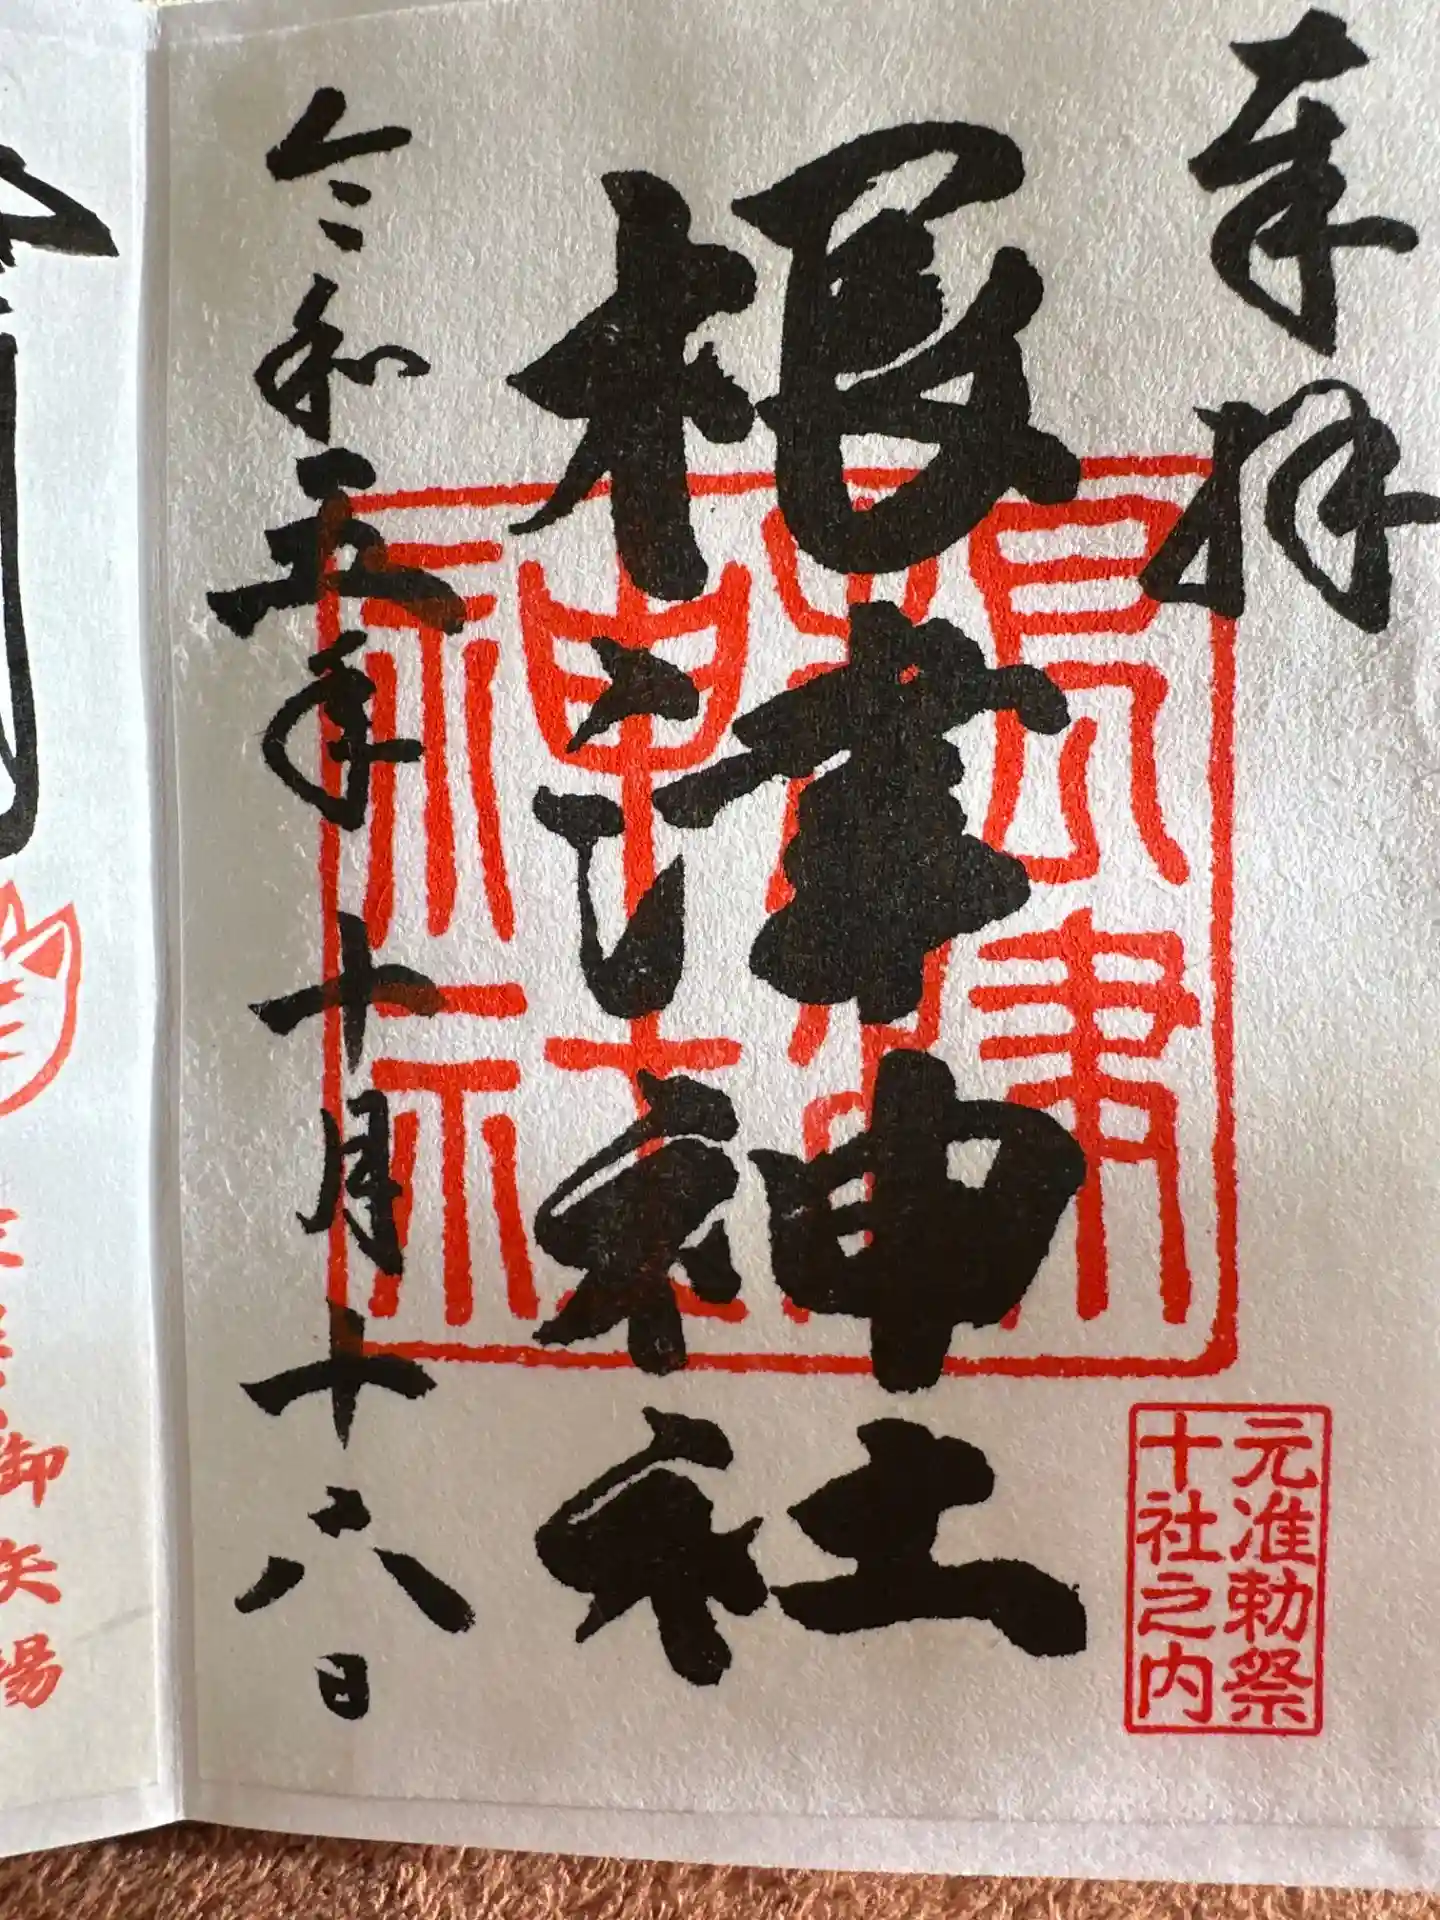 奉拝
根津神社
根津
神社
元准勅祭
十社之内
令和五年十月十六日
御矢場